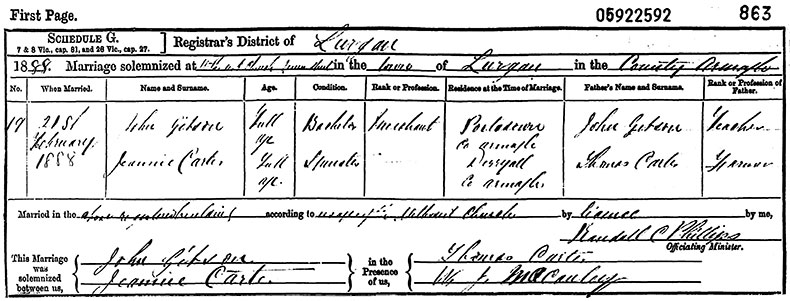 First Page. 05922592 863
SCHEDULE G.
7 & 8 Vic., cap. 81, and 26 Vic., cap. 27.
Registrar's District of Lurgan
1888. Marriage solemnized at in the town of Lurgan in the County Armagh
No. When Married. Name and Surname. Age. Condition. Rank or Profession. Residence at the Time of Marriage. Father's Name and Surname. Rank or Profession of Father.
17 21st February 1888 John Gibson Full age Bachelor Merchant Portadown Co Armagh John Gibson Teacher
Jeannie Carter Full age. Spinster Derryall Co Armagh Thomas Carter Farmer
Married in the according to Methodist Church by licence by me,
Randall C Phillips
Officiating Minister.
This Marriage was solemnized between us,
John Gibson
Jeannie Carter
in the Presence of us,
Thomas Carter
Wm J McCauley